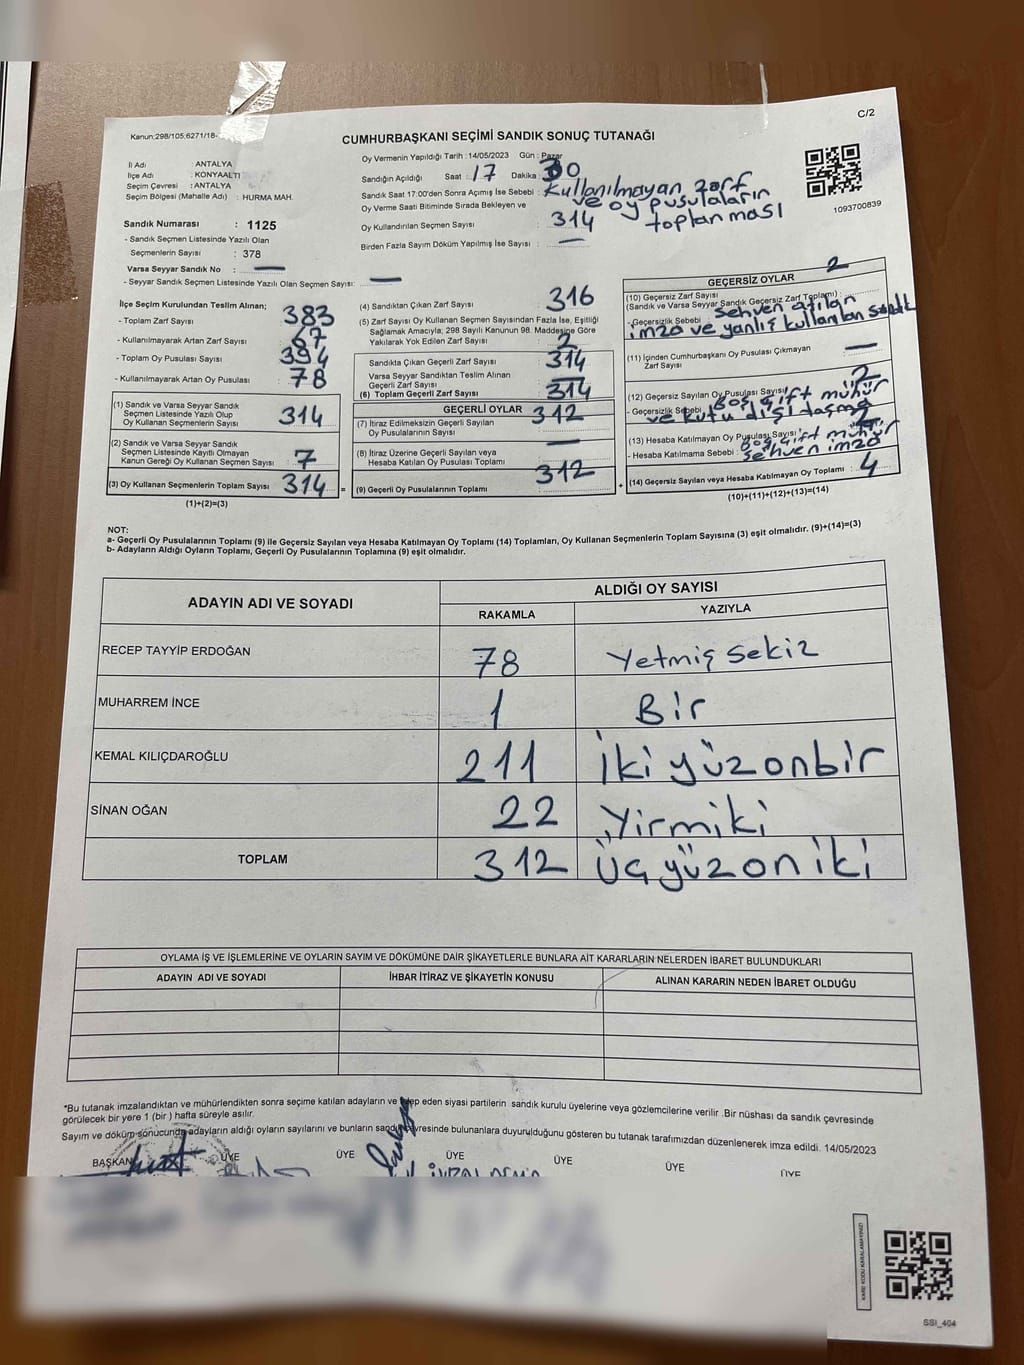 C/2
Kanun:298/105;6271/18-
CUMHURBAŞKANI SEÇİMİ SANDIK SONUÇ TUTANAĞI
İl Adı : ANTALYA
İlçe Adı : KONYAALTI
Seçim Çevresi : ANTALYA
Seçim Bölgesi (Mahalle Adı) : HURMA MAH.
Sandık Numarası : 1125
- Sandık Seçmen Listesinde Yazılı Olan
Seçmenlerin Sayısı : 378
Varsa Seyyar Sandık No : —
- Seyyar Sandık Seçmen Listesinde Yazılı Olan Seçmen Sayısı: —
Oy Vermenin Yapıldığı Tarih : 14/05/2023 Gün : Pazar
Sandığın Açıldığı Saat : 17 Dakika 30
Sandık Saat 17:00'den Sonra Açımış İse Sebebi : Kullanılmayan zarf
ve oy pusulaların
toplanması
Oy Verme Saati Bitiminde Sırada Bekleyen ve
Oy Kullandırılan Seçmen Sayısı : 314
Birden Fazla Sayım Döküm Yapılmış İse Sayısı : —
1093700839
İlçe Seçim Kurulundan Teslim Alınan;
- Toplam Zarf Sayısı 383
- Kullanılmayarak Artan Zarf Sayısı 67
- Toplam Oy Pusulası Sayısı 394
- Kullanılmayarak Artan Oy Pusulası 78
(1) Sandık ve Varsa Seyyar Sandık
Seçmen Listesinde Yazılı Olup
Oy Kullanan Seçmenlerin Sayısı 314
(2) Sandık ve Varsa Seyyar Sandık
Seçmen Listesinde Kayıtlı Olmayan
Kanun Gereği Oy Kullanan Seçmen Sayısı 7
(3) Oy Kullanan Seçmenlerin Toplam Sayısı 314
(1)+(2)=(3)
(4) Sandıktan Çıkan Zarf Sayısı : 316
(5) Zarf Sayısı Oy Kullanan Seçmen Sayısından Fazla İse, Eşitliği
Sağlamak Amacıyla; 298 Sayılı Kanunun 98. Maddesine Göre
Yakılarak Yok Edilen Zarf Sayısı : 2
Sandıkta Çıkan Geçerli Zarf Sayısı 314
Varsa Seyyar Sandıktan Teslim Alınan
Geçerli Zarf Sayısı —
(6) Toplam Geçerli Zarf Sayısı 314
GEÇERLİ OYLAR
(7) İtiraz Edilmeksizin Geçerli Sayılan
Oy Pusulalarının Sayısı 312
(8) İtiraz Üzerine Geçerli Sayılan veya
Hesaba Katılan Oy Pusulası Toplamı —
(9) Geçerli Oy Pusulalarının Toplamı 312
GEÇERSİZ OYLAR
(10) Geçersiz Zarf Sayısı 2
(Sandık ve Varsa Seyyar Sandık Geçersiz Zarf Toplamı) :
- Geçersizlik Sebebi : Sehven atılan
imza ve yanlış kullanılan sandık
(11) İçinden Cumhurbaşkanı Oy Pusulası Çıkmayan
Zarf Sayısı —
(12) Geçersiz Sayılan Oy Pusulası Sayısı : 2
- Geçersizlik Sebebi : Boş çift mühür
ve kutu dışı taşma
(13) Hesaba Katılmayan Oy Pusulası Sayısı : 2
- Hesaba Katılmama Sebebi : Boş çift mühür
sehven imza
(14) Geçersiz Sayılan veya Hesaba Katılmayan Oy Toplamı : 4
(10)+(11)+(12)+(13)=(14)
NOT:
a- Geçerli Oy Pusulalarının Toplamı (9) ile Geçersiz Sayılan veya Hesaba Katılmayan Oy Toplamı (14) Toplamları, Oy Kullanan Seçmenlerin Toplam Sayısına (3) eşit olmalıdır. (9)+(14)=(3)
b- Adayların Aldığı Oyların Toplamı, Geçerli Oy Pusulalarının Toplamına (9) eşit olmalıdır.
ADAYIN ADI VE SOYADI
ALDIĞI OY SAYISI
RAKAMLA YAZIYLA
RECEP TAYYİP ERDOĞAN 78 Yetmiş sekiz
MUHARREM İNCE 1 Bir
KEMAL KILIÇDAROĞLU 211 İki yüzonbir
SİNAN OĞAN 22 Yirmiki
TOPLAM 312 Üçyüzoniki
OYLAMA İŞ VE İŞLEMLERİNE VE OYLARIN SAYIM VE DÖKÜMÜNE DAİR ŞİKAYETLERLE BUNLARA AİT KARARLARIN NELERDEN İBARET BULUNDUKLARI
ADAYIN ADI VE SOYADI İHBAR İTİRAZ VE ŞİKAYETİN KONUSU ALINAN KARARIN NEDEN İBARET OLDUĞU
*Bu tutanak imzalandıktan ve mühürlendikten sonra seçime katılan adayların ve eden siyasi partilerin sandık kurulu üyelerine veya gözlemcilerine verilir .Bir nüshası da sandık çevresinde
görülecek bir yere 1 (bir ) hafta süreyle asılır.
Sayım ve döküm sonucunda adayların aldığı oyların sayılarını ve bunların sandık çevresinde bulunanlara duyurulduğunu gösteren bu tutanak tarafımızdan düzenlenerek imza edildi. 14/05/2023
BAŞKAN ÜYE ÜYE ÜYE ÜYE ÜYE ÜYE
KARE KODU KARALAMAYINIZ!
SSI_404